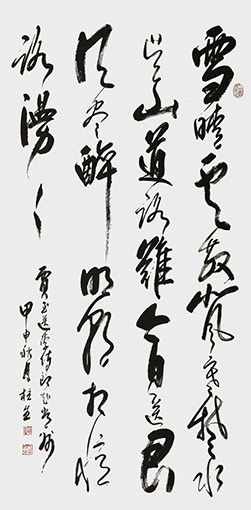 雪晴云散北風寒楚水
吴山道路難今日送君
須尽醉明朝相憶
路漫々
賈至送李侍郎赴常州
甲申秋月桂